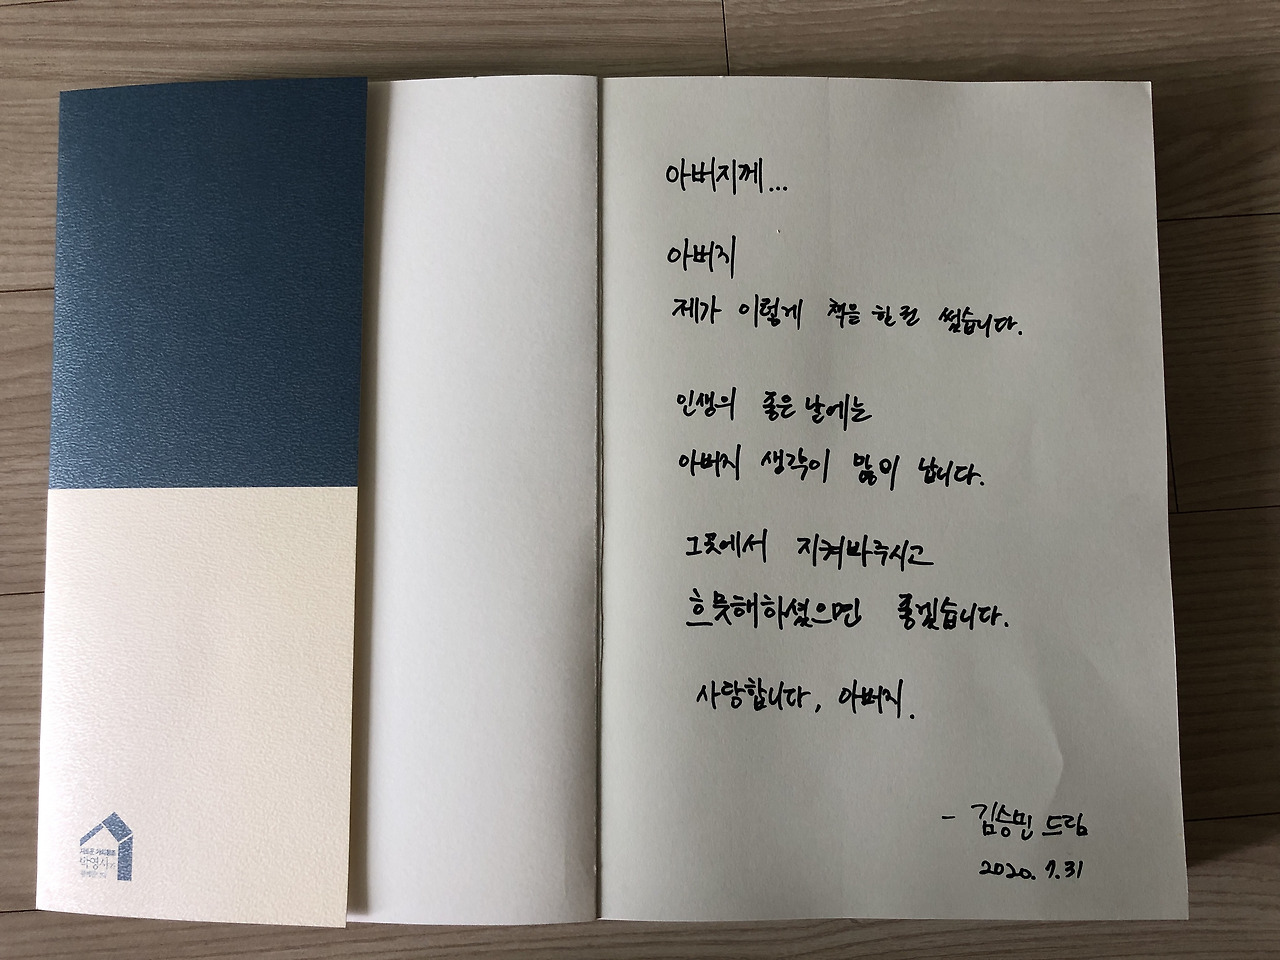 아버지께...
아버지
제가 이렇게 책을 한 권 썼습니다.
인생의 좋은 날에는
아버지 생각이 많이 납니다.
그곳에서 지켜봐주시고
흐뭇해하셨으면 좋겠습니다.
사랑합니다, 아버지.
- 김승민 드림
2020. 7. 31
박영사